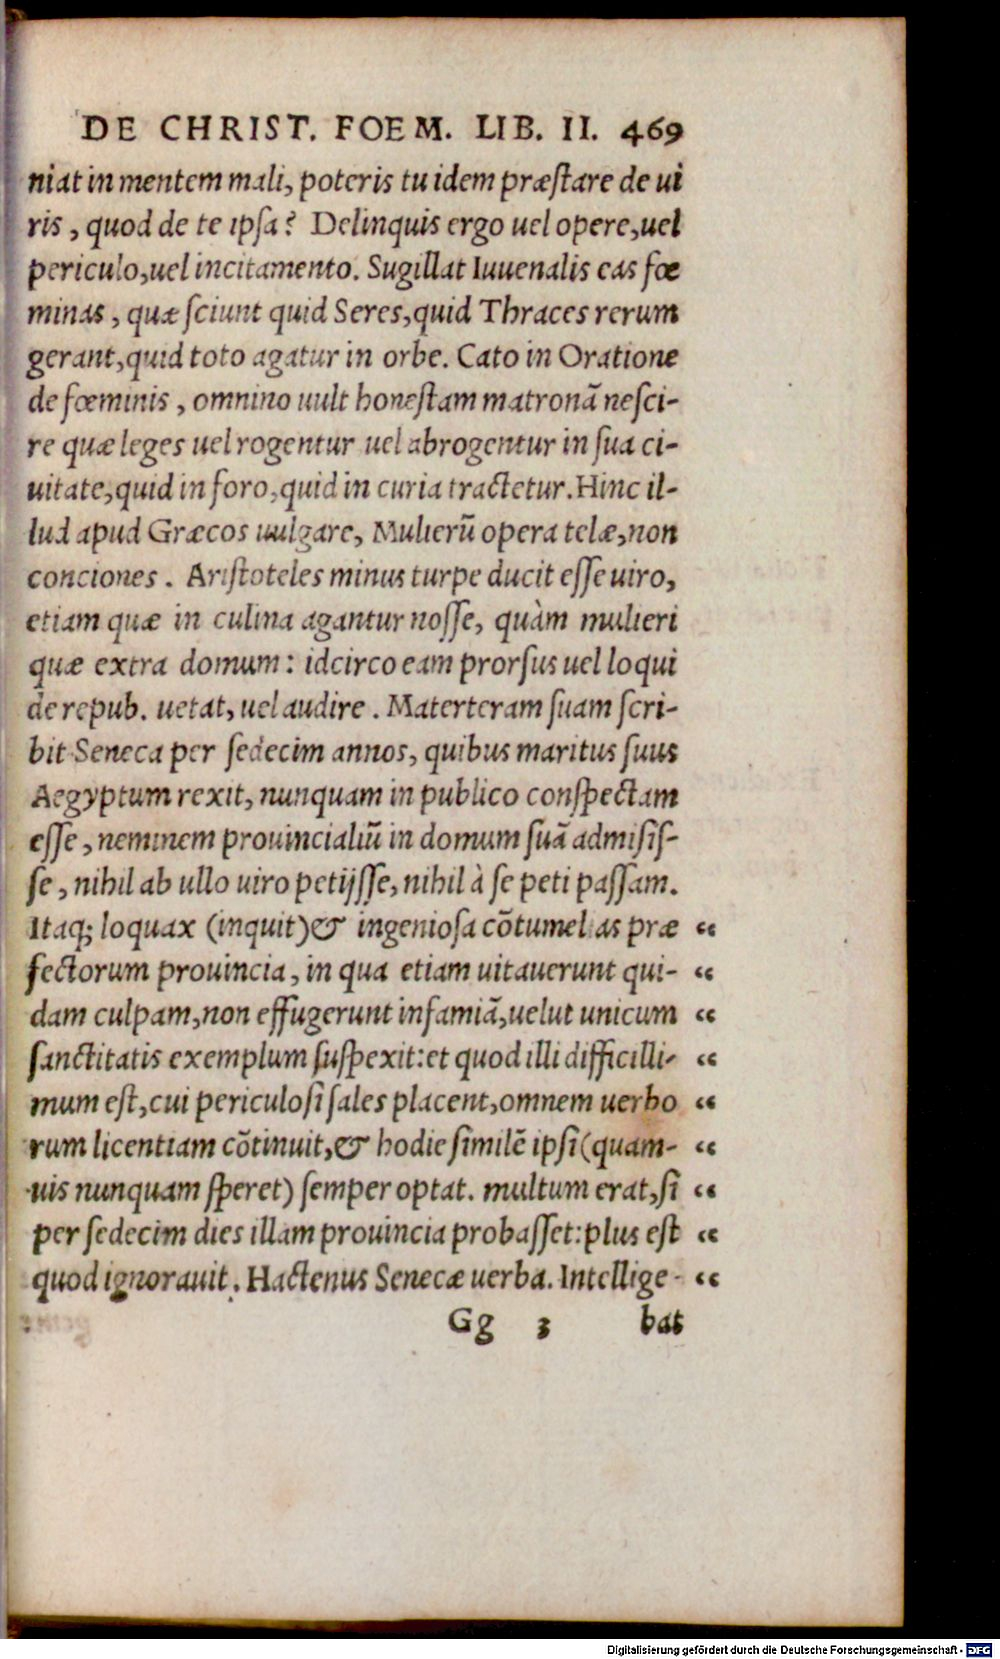 DE CHRIST. FOEM. LIB. II. 469
niat in mentem mali, poteris tu idem præſtare de ui
ris, quod de te ipſa? Delinquis ergo uel opere, uel
periculo, uel incitamento. Sugillat Iuuenalis eas fœ
minas, quæ ſciunt quid Seres, quid Thraces rerum
gerant, quid toto agatur in orbe. Cato in Oratione
de fœminis, omnino uult honeſtam matronã neſci-
re quæ leges uel rogentur uel abrogentur in ſua ci-
uitate, quid in foro, quid in curia tractetur. Hinc il-
lud apud Græcos uulgare, Mulierũ opera telæ, non
conciones. Ariſtoteles minus turpe ducit eſſe uiro,
etiam quæ in culina agantur noſſe, quàm mulieri
quæ extra domum: idcirco eam prorſus uel loqui
de repub. uetat, uel audire. Materteram ſuam ſcri-
bit Seneca per ſedecim annos, quibus maritus ſuus
Aegyptum rexit, nunquam in publico conſpectam
eſſe, neminem prouincialiũ in domum ſuã admiſiſ-
ſe, nihil ab ullo uiro petijſſe, nihil à ſe peti paſſam.
Itaq; loquax (inquit) & ingenioſa cõtumelias præ “
fectorum prouincia, in qua etiam uitauerunt qui- “
dam culpam, non effugerunt infamiã, uelut unicum “
ſanctitatis exemplum ſuſpexit: et quod illi difficilli- “
mum eſt, cui periculoſi ſales placent, omnem uerbo “
rum licentiam cõtinuit, & hodie ſimilẽ ipſi (quam- “
uis nunquam ſperet) ſemper optat. multum erat, ſi “
per ſedecim dies illam prouincia probaſſet: plus eſt “
quod ignorauit. Hactenus Senecæ uerba. Intellige- “
Gg 3 bat
Digitalisierung gefördert durch die Deutsche Forschungsgemeinschaft - DFG